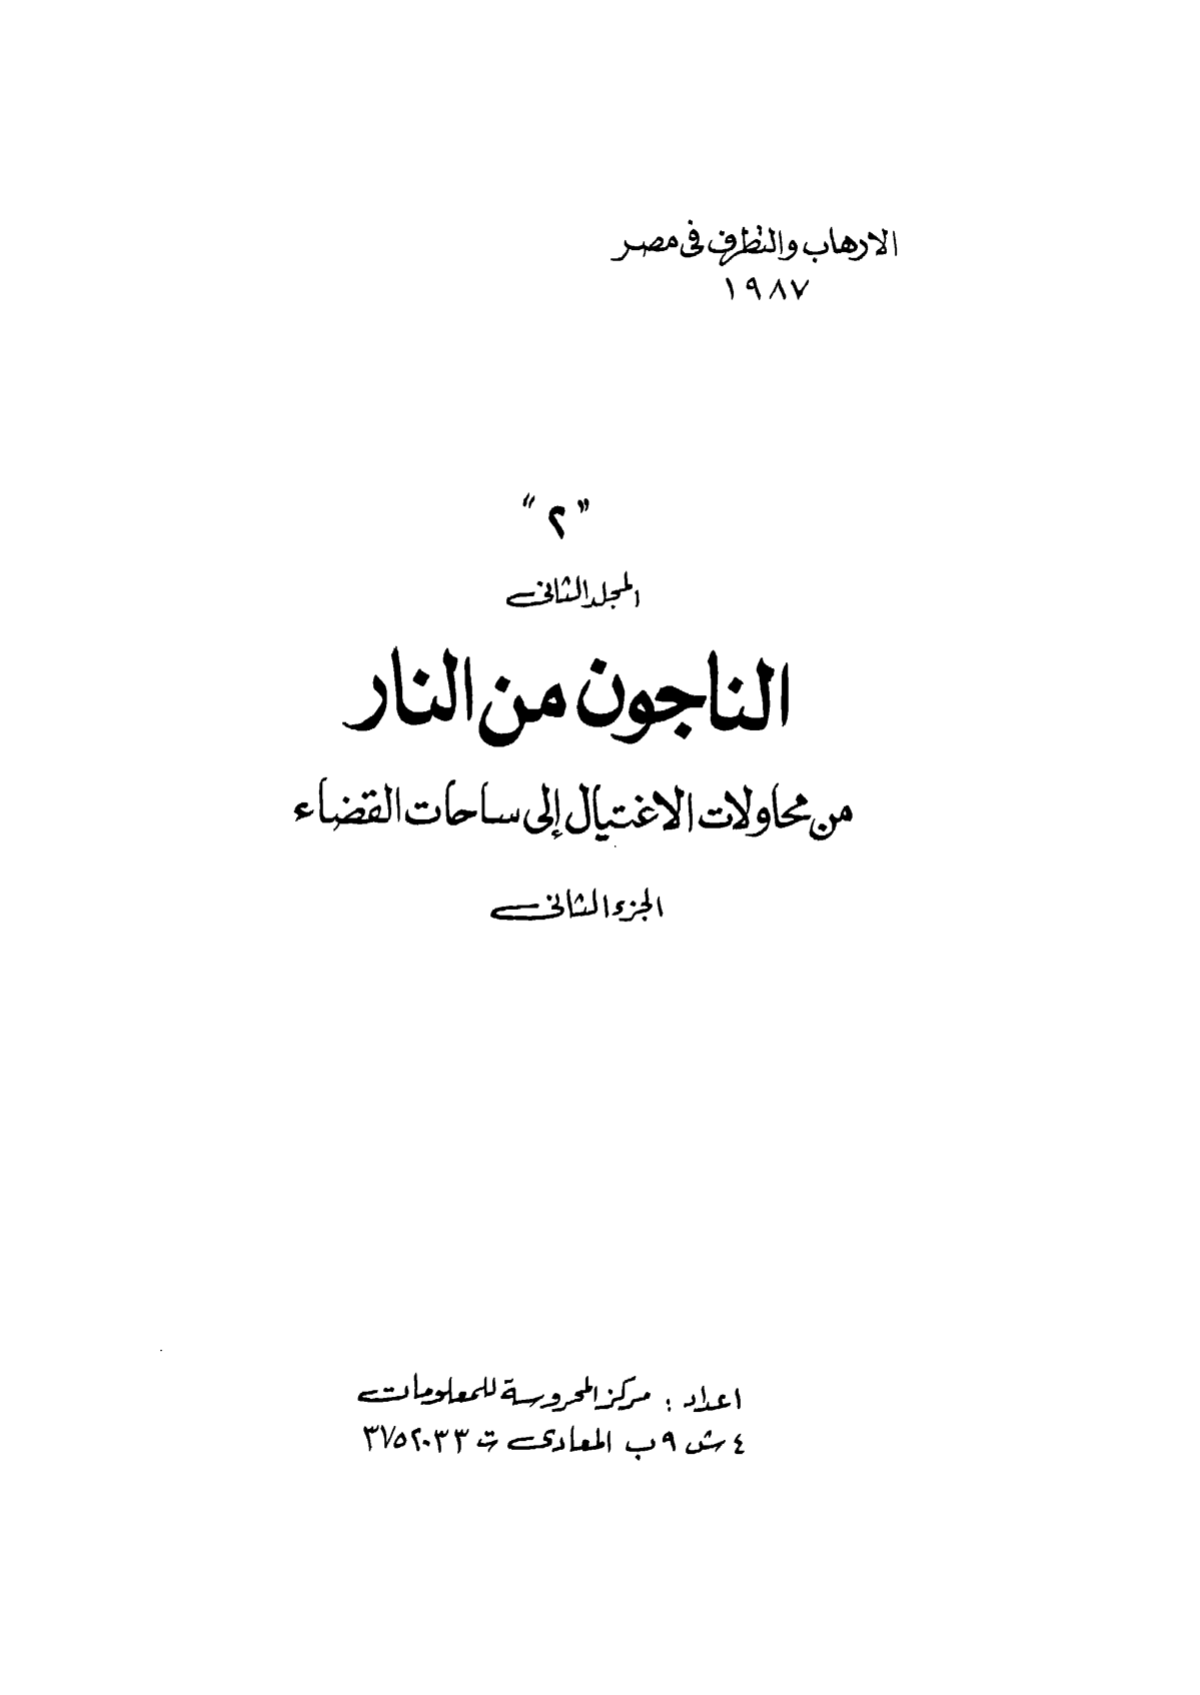 الارهاب والتطرف فى مصر
١٩٨٧
"٢"
المجلد الثانى
الناجون من النار
من محاولات الاغتيال إلى ساحات القضاء
الجزء الثانى
اعداد : مركز المحروسة للمعلومات
٤ ش ٩ ب المعادى ت ٣٧٥٢٠٣٣